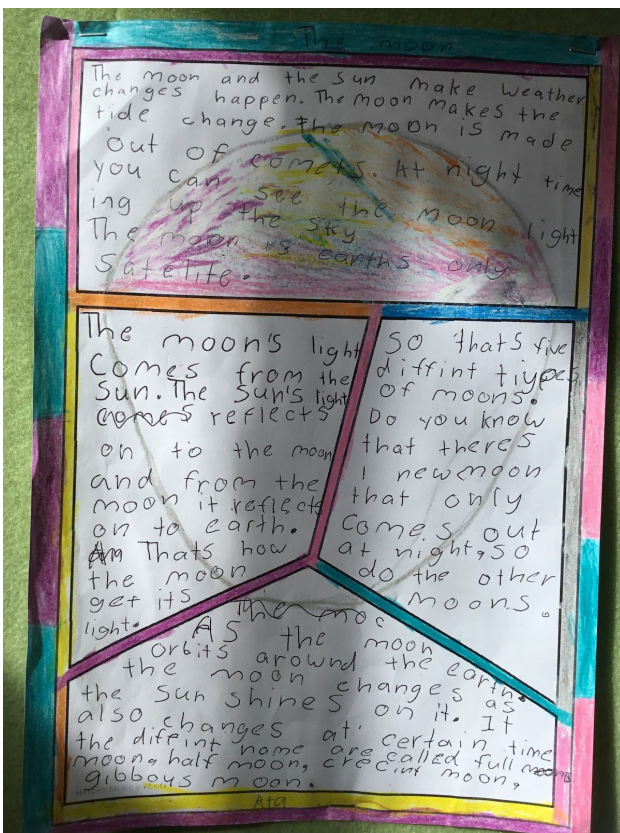 The moon
The moon and the sun make weather
changes happen. The moon makes the
tide change. The moon is made
out of comets. At night time
you can see the moon light
ing up the sky
The moon is earths only
Satelite.
The moon's light
Comes from the
Sun. The Sun's light
comes reflects
on to the moon
and from the
moon it reflects
on to earth.
An Thats how
the moon
get its
light.
So thats five
diffint tiypes
of moons.
Do you know
that theres
1 new moon
that only
Comes out
at night, so
do the other
moons.
The moc
As the moon
orbits arownd the earth
the moon changes as
the sun shines on it. It
also changes at certain time
the diffint name are called full moons
moong half moon, crecint moon,
gibboys moon.
Ata